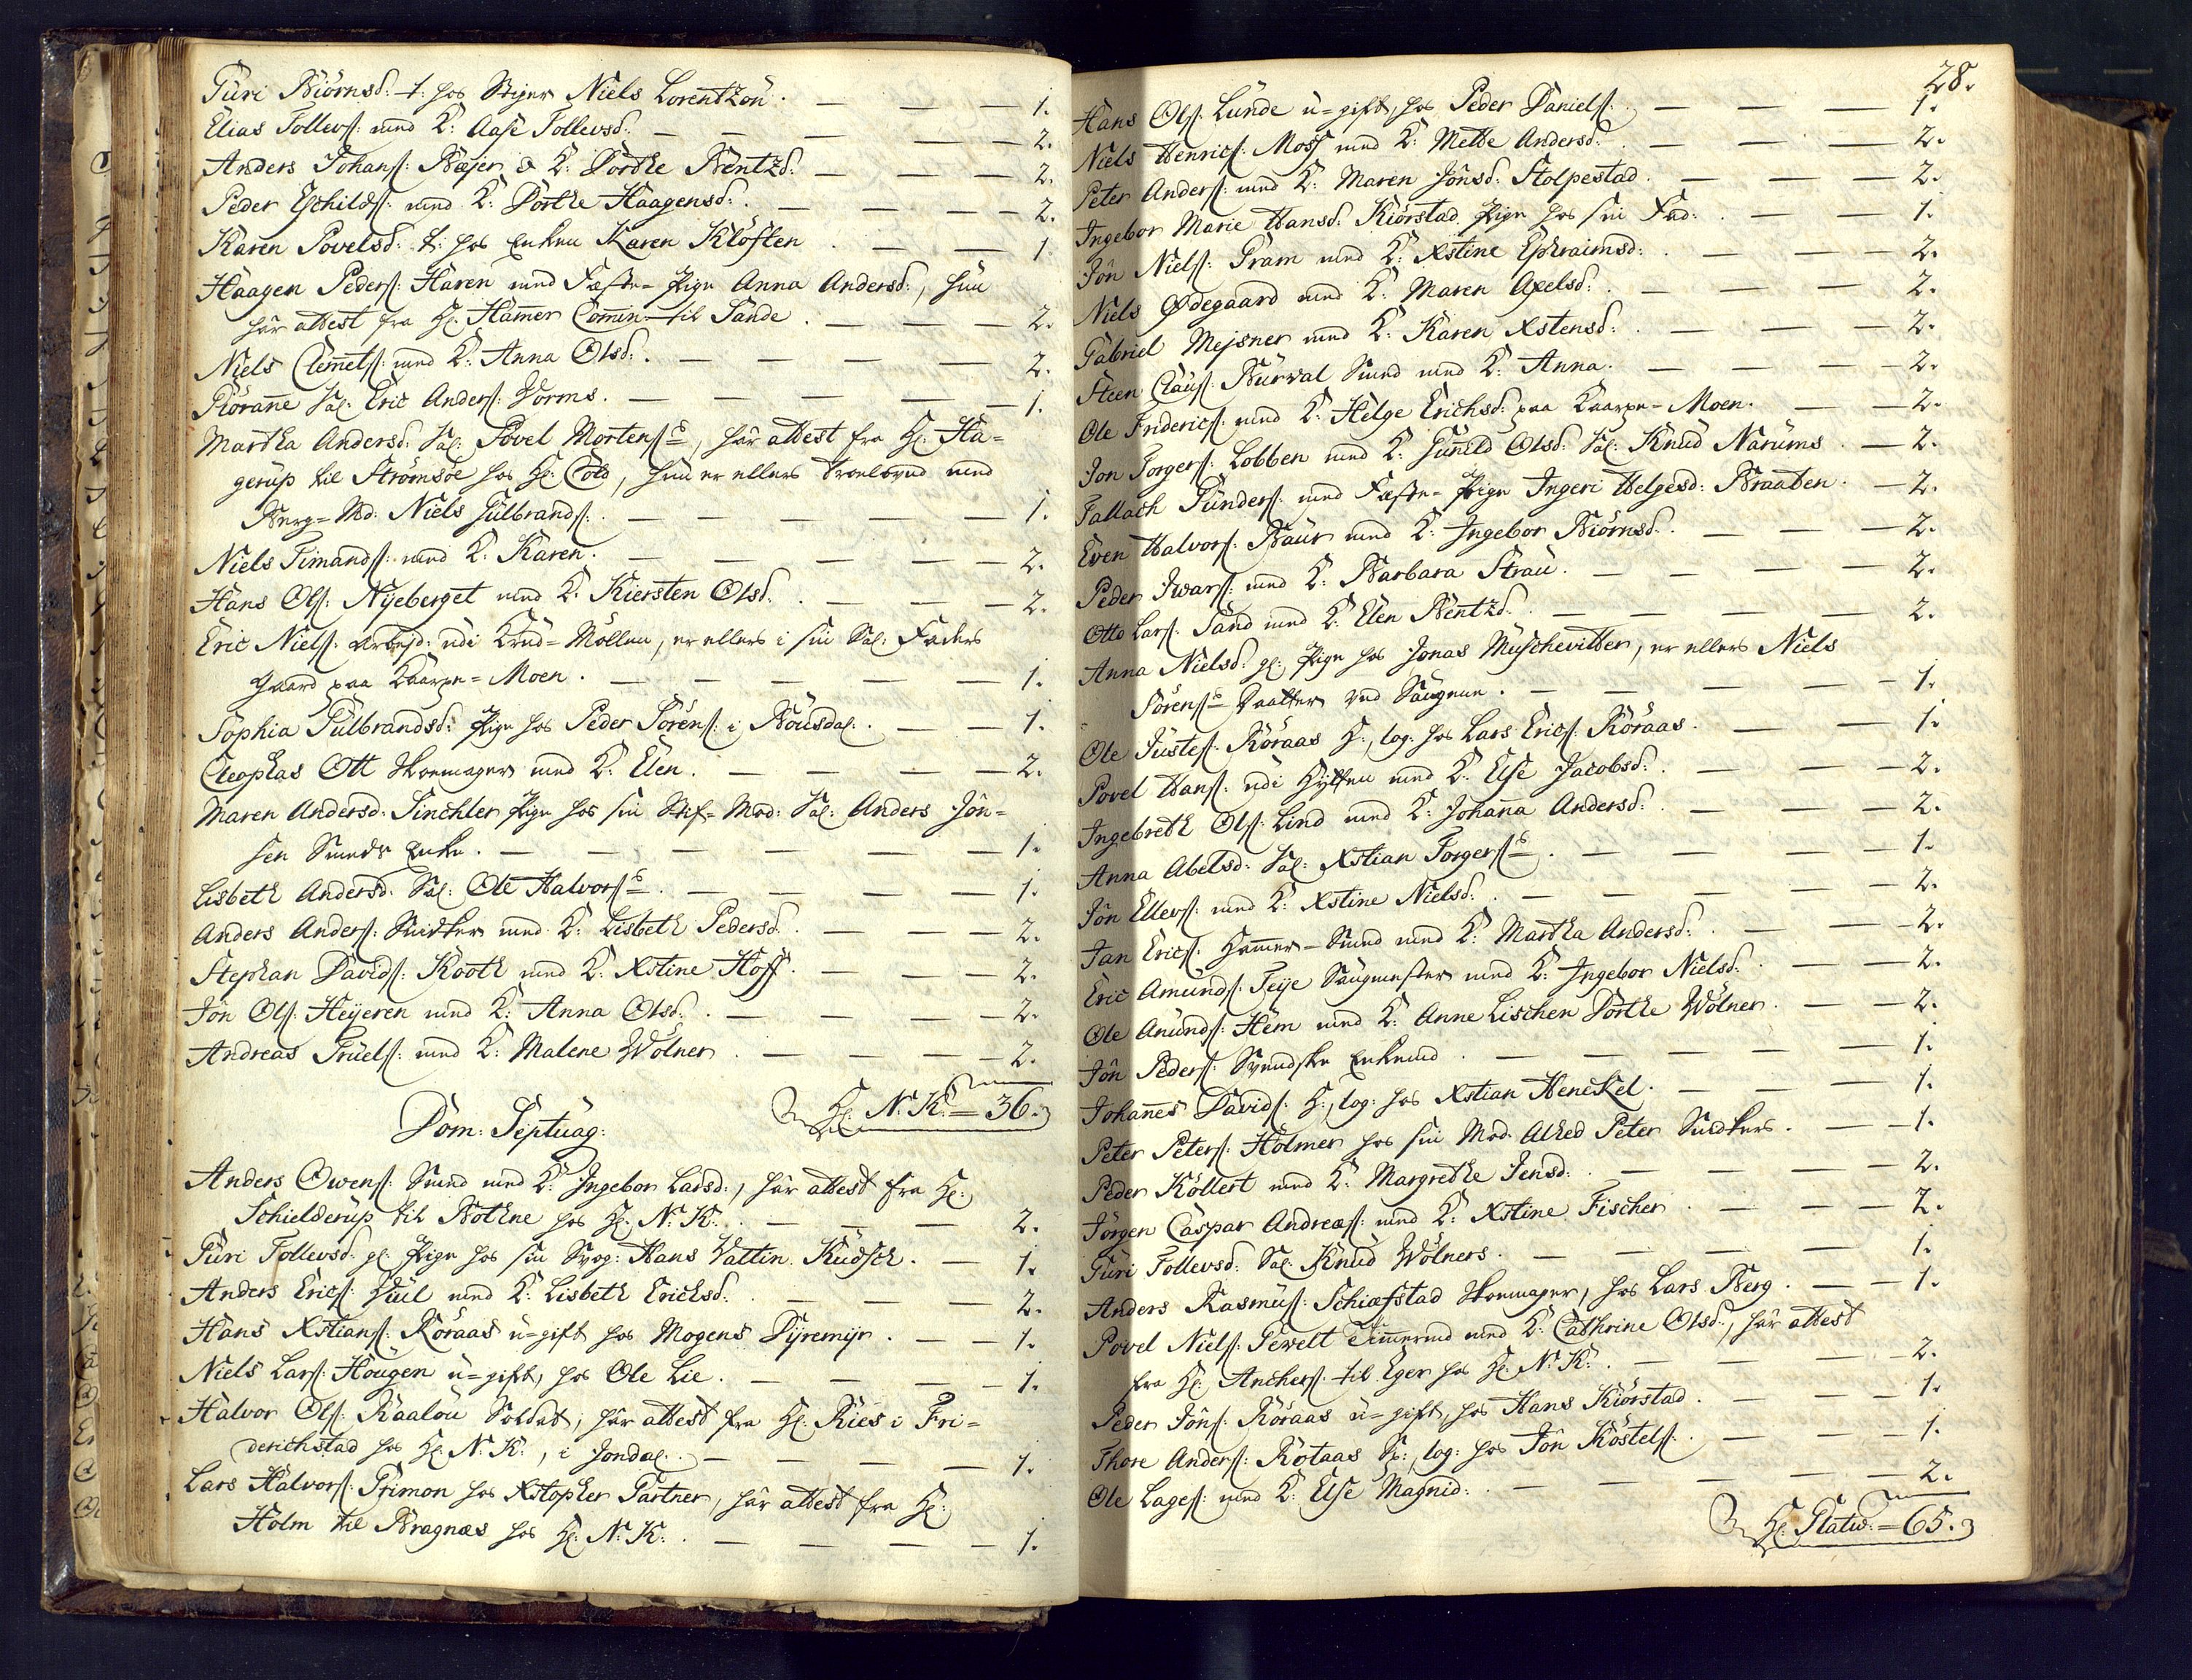 Guri Biörnsd: t: hos Stiger Niels Lorentzön. — — — 1.
Elias Tollevs: med K: Aase Tollevsd: — — — — — 2.
Anders Johans: Bejer & K: Dorthe Bentzd: — — — 2.
Peder Eschilds: med K: Dorthe Haagensd: — — — — 2.
Karen Povelsd: t: hos Enken Karen Klöften — — — 1.
Haagen Peders: Haren med Fæste-Pige Anna Andersd:, hun
har attest fra Hr: Hamer Comin: til Sande. — — — 2.
Niels Clemets: med K: Anna Olsd: — — — — 2.
Röranne Sal: Eric Anders: Vorms. — — — — — 1.
Martha Andersd: Sal: Povel Mortens:, har attest fra Hr: Ha-
gerup til Strömsöe hos Hr: Cold, hun er ellers troelovud med
Berg-Md: Niels Gulbrands: — — — — — 1.
Niels Simands: med K: Karen. — — — — — 2.
Hans Ols: Nyeberget med K: Kiersten Olsd: — — — 2.
Eric Niels: Arbejd: udi Krud-Möllen, er ellers i sin Sal: Faders
Gaard paa Kaarpe-Moen. — — — — — 1.
Sophia Gulbrandsd: Pige hos Peder Sörens: i Bousdal. — — 1.
Cleophas Ott Skoemager med K: Elen. — — — — 2.
Maren Andersd: Sinchler Pige hos sin Stif-Mod: Sal: Anders Jon-
sen Smeds Enke. — — — — — — 1.
Lisbeth Andersd: Sal: Ole Halvors: — — — — 1.
Anders Anders: Snidker med K: Lisbeth Pedersd: — — — 2.
Stephan Davids: Kooth med K: Xstine Hoff. — — — 2.
Jon Ols: Heyeren med K: Anna Olsd: — — — — 2.
Andreas Truels: med K: Malene Wölner — — — — 2.
Hr: N: K: = 36.
Dom: Septuag:
Anders Owens: Smed med K: Ingebor Larsd:, har attest fra Hr:
Schielderup til Bothne hos Hr: N: K: — — — 2.
Guri Tollevsd: gl: Pige hos sin Svog: Hans Vattin. Kudsch. — 1.
Anders Erics: Huul med K: Lisbeth Erichsd: — — — 2.
Hans Xstians: Röraas u-gift hos Mogens Dyremyr. — — 1.
Niels Lars: Hougen u-gift, hos Ole Lie. — — — — 1.
Halvor Ols: Raalou Soldat, har attest fra Hr: Ries i Fri-
derichstad hos Hr: N: K:, i Jondal. — — — — 1.
Lars Halvors: Primon hos Xstopher Partner, har attest fra Hr:
Holm til Bragnæs hos Hr: N: K: — — — — 1.
28.
Hans Ols: Lunde u-gift, hos Peder Daniels: — — — 1.
Niels Henrics: Moss med K: Mette Andersd: — — — 2.
Peter Anders: med K: Maren Jonsd: Stolpestad. — — — 2.
Ingebor Marie Hansd: Kiörstad Pige hos sin Fad: — — 1.
Jon Niels: Pram med K: Xstine Ephraimsd: — — — 2.
Niels Ødegaard med K: Maren Axelsd: — — — — 2.
Gabriel Mejsner med K: Karen Xstensd: — — — 2.
Steen Claus: Burval Smed med K: Anna. — — — — 2.
Ole Frideries: med K: Helge Erichsd: paa Kaarpe-Moen. — — 2.
Jon Torgers: Lobben med K: Gunild Olsd: Sal: Knud Narums — 2.
Tallach Gunders: med Fæste-Pige Ingeri Helgesd: Braaten. — 2.
Even Halvors: Baur med K: Ingebor Biörnsd: — — — 2.
Peder Iwars: med K: Barbara Strau. — — — — 2.
Otto Lars: Sand med K: Elen Bentzd: — — — — 2.
Anna Nielsd: gl: Pige hos Jonas Muschevitter, er ellers Niels
Sörens: Daatter ved Saugene. — — — — — 1.
Ole Justes: Röraas H:, log: hos Lars Erics: Röraas. — — 1.
Povel Hans: udi Hytten med K: Else Jacobsd: — — — 2.
Ingebreth Ols: Lind med K: Johana Andersd: — — — 2.
Anna Abelsd: Sal: Xstian Torgers: — — — — 1.
Jon Ellers: med K: Xstine Nielsd: — — — — — 2.
Jan Erics: Hammer-Smed med K: Martha Andersd: — — 2.
Eric Amunds: Teije Saugmester med K: Ingebor Nielsd: — — 2.
Ole Anunds: Hem med K: Anne Lischen Dorthe Wölner. — — 2.
Jon Peders: Svendske Enkemd. — — — — — 1.
Johannes Davids: H:, log: hos Xstian Heneckel. — — — 1.
Peter Peters: Holmer hos sin Mod: Alhed Peter Snedkers. — — 1.
Peder Köllert med K: Margrethe Jensd: — — — — 2.
Jörgen Caspar Andreas: med K: Xstine Fischer. — — — 2.
Guri Tollevsd: Sal: Knud Wölners. — — — — — 1.
Anders Rasmus: Schiefstad Skoemager, hos Lars Berg. — — 1.
Povel Niels: Tewelt Timermd med K: Cathrine Olsd:, har attest
fra Hr: Anchers: til Eger hos Hr: N: K: — — — — 2.
Peder Jons: Röraas u-gift, hos Hans Kiörstad. — — — 1.
Thore Anders: Rotaas S:, log: hos Jon Kostels: — — — 1.
Ole Lages: med K: Else Magnid: — — — — — 2.
Hr: Platw: = 65.